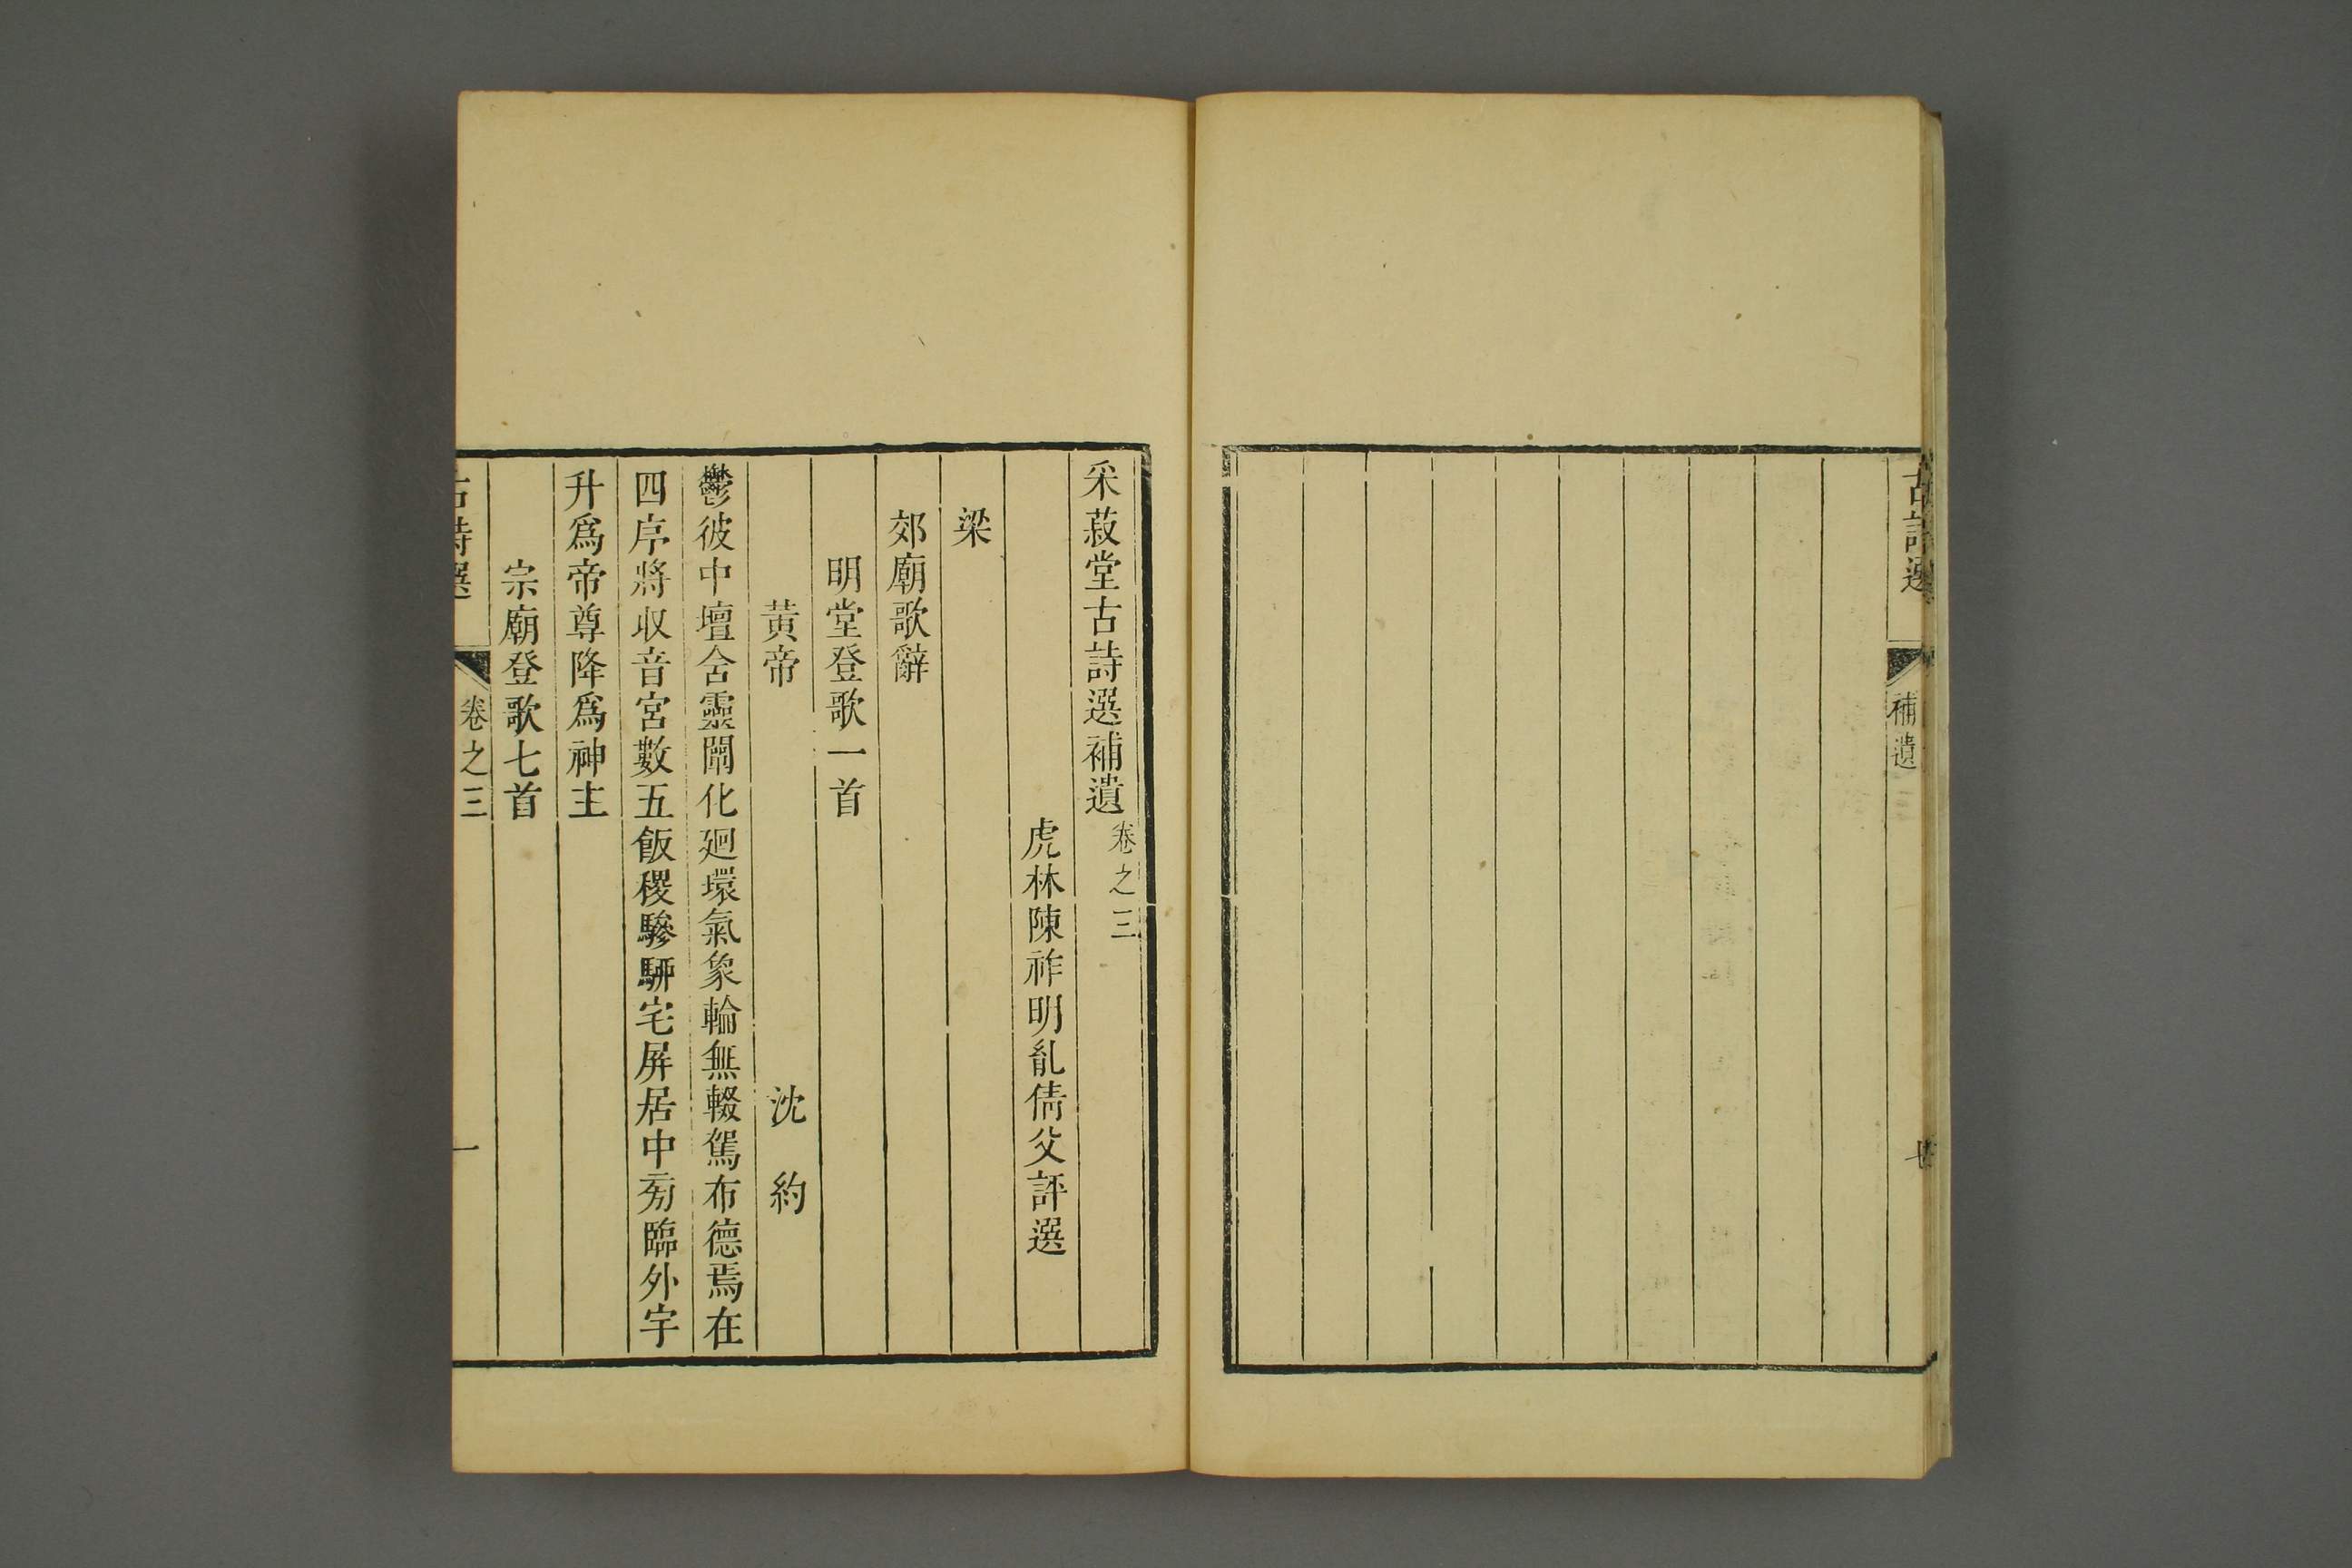 古詩選
補遺
采菽堂古詩選補遺卷之三
虎林陳祚明胤倩父評選
梁
郊廟歌辭
明堂登歌一首
黃帝 沈約
鬱彼中壇含靈闡化廻環氣象輪無輟駕布德焉在
四序將収音宮數五飯稷驂駵宅屏居中旁臨外宇
升爲帝尊降爲神主
宗廟登歌七首
古詩選
卷之三
一